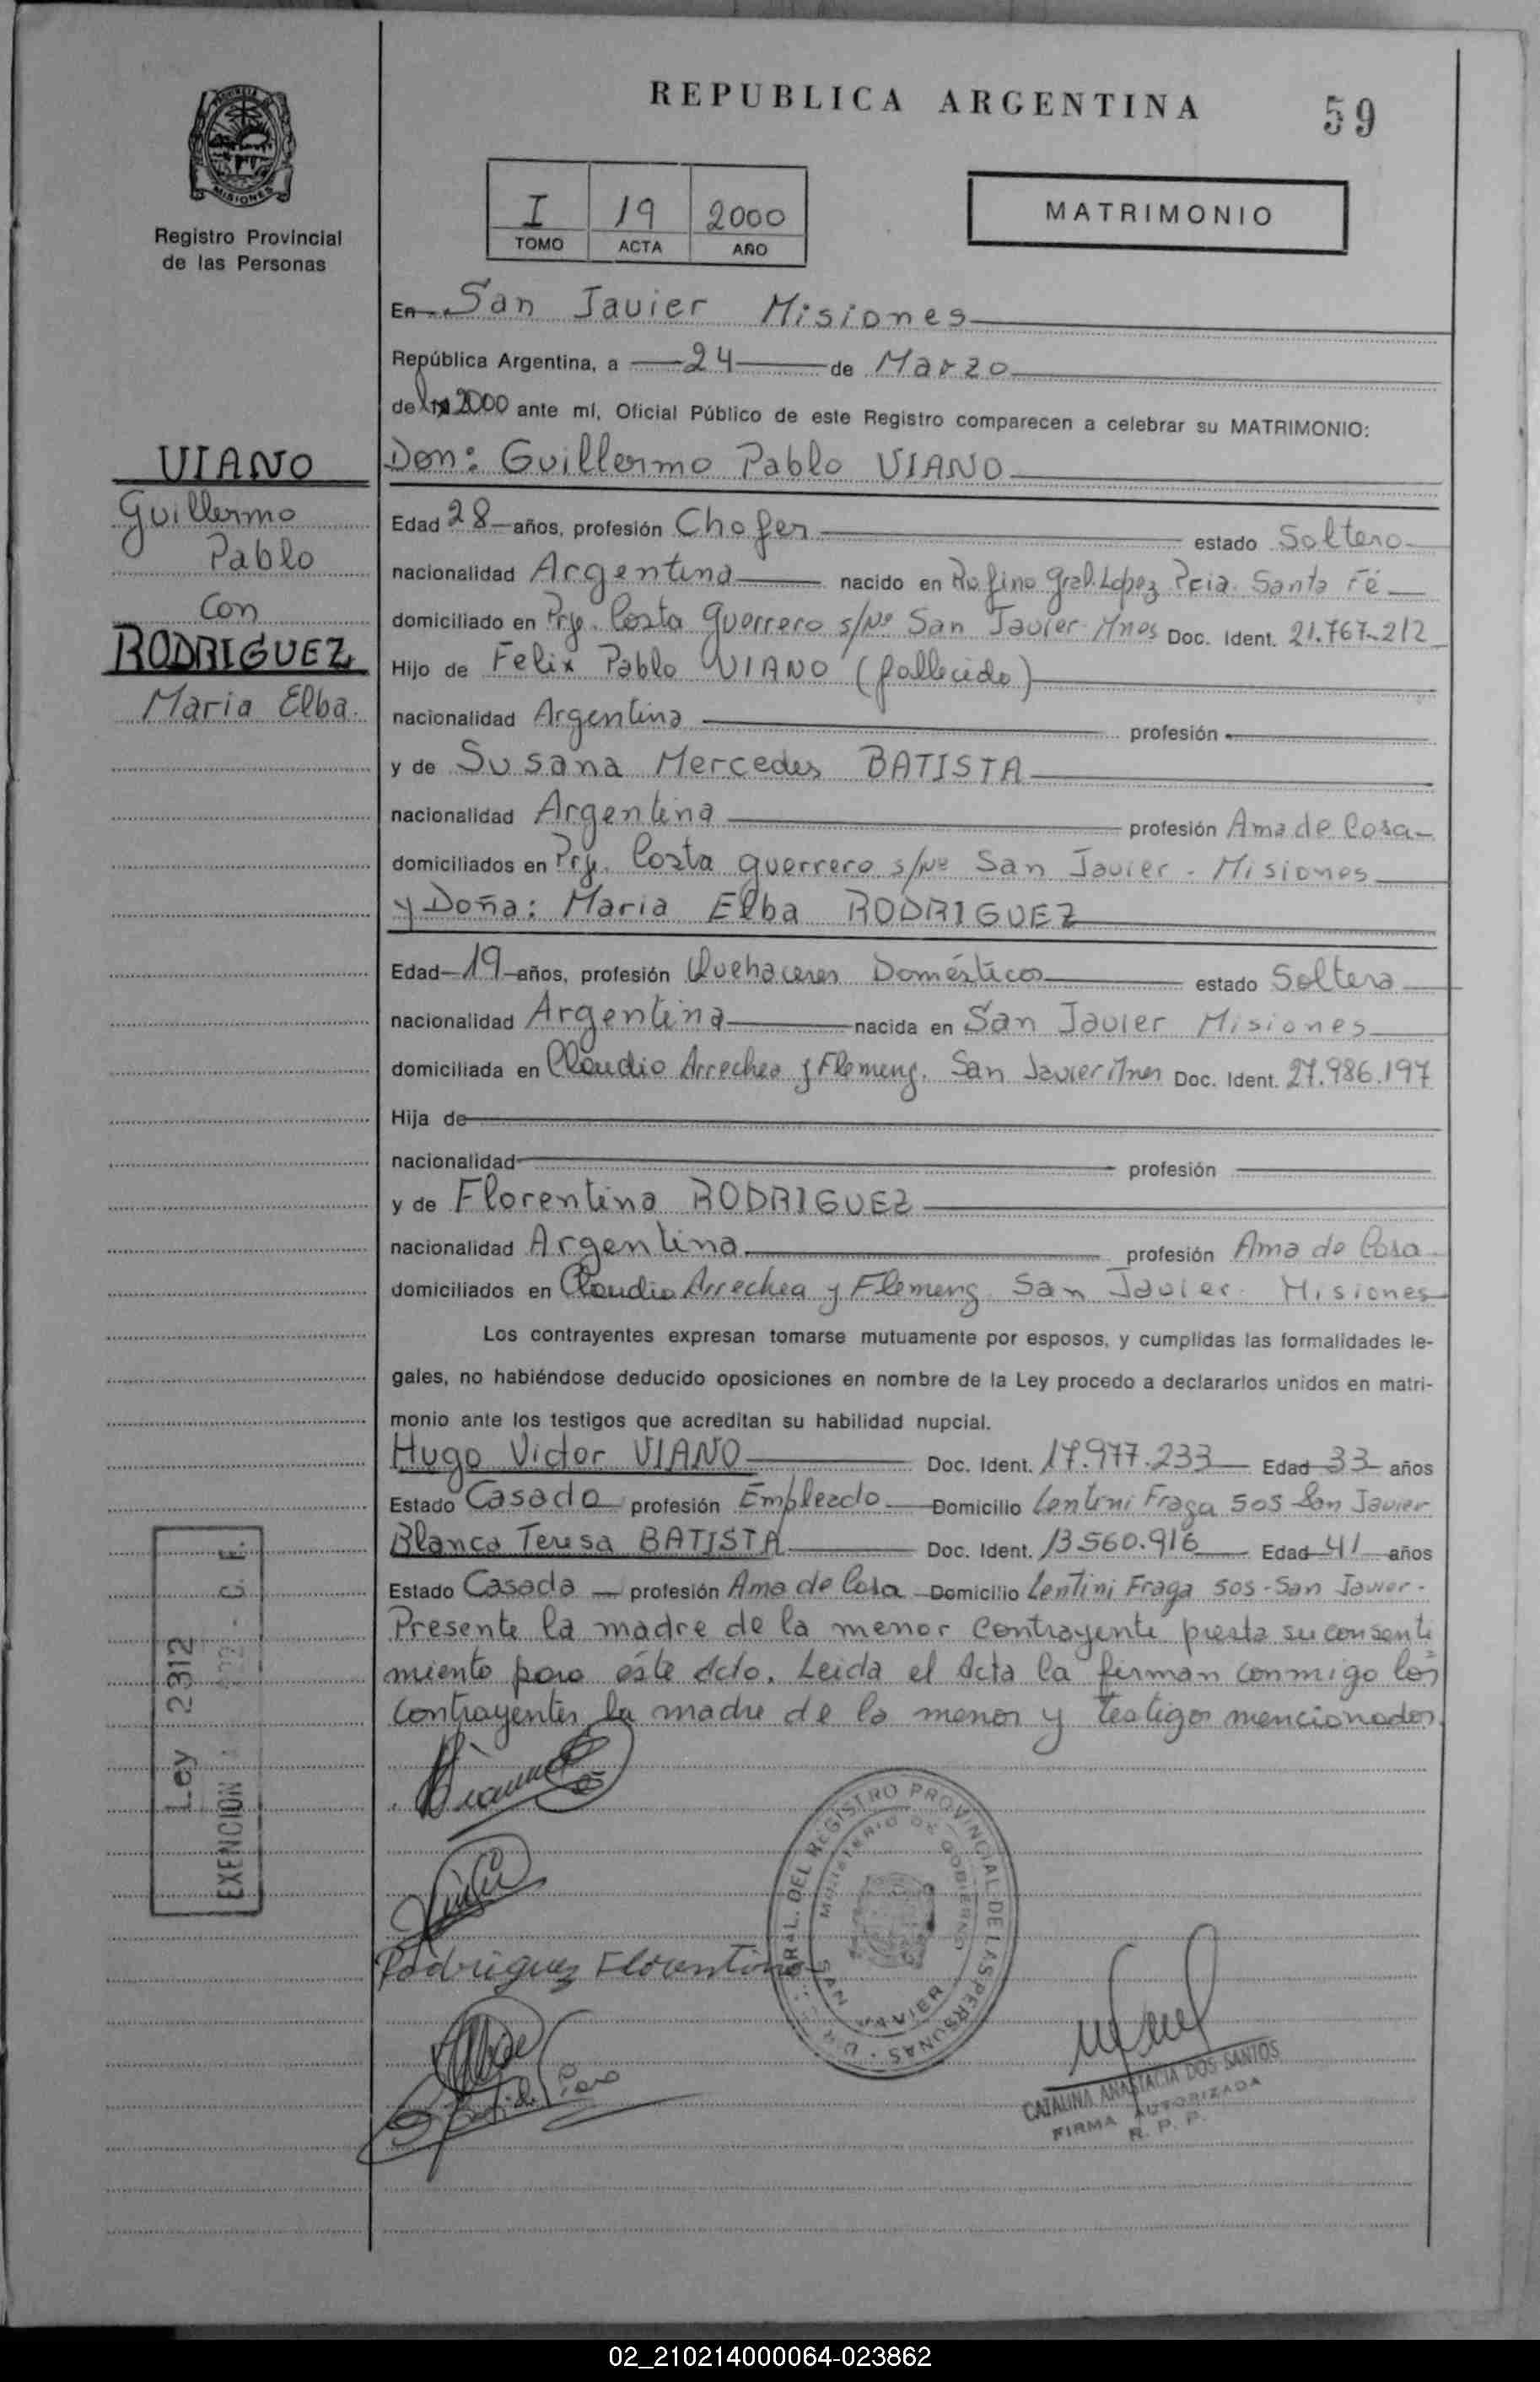 REPUBLICA ARGENTINA
59
PROVINCIA DE MISIONES
Registro Provincial
de las Personas
I 19 2000
TOMO ACTA AÑO
MATRIMONIO
En San Javier Misiones
República Argentina, a 24 de Marzo
del 2000 ante mí, Oficial Público de este Registro comparecen a celebrar su MATRIMONIO:
VIANO
Guillermo
Pablo
con
RODRIGUEZ
Maria Elba.
Don: Guillermo Pablo VIANO
Edad 28 años, profesión Chofer estado Soltero
nacionalidad Argentina nacido en Rufino Gral. Lopez Pcia. Santa Fé
domiciliado en Prje. Costa Guerrero s/Nº San Javier Mnes Doc. Ident. 21.767.212
Hijo de Felix Pablo VIANO (fallecido)
nacionalidad Argentina profesión
y de Susana Mercedes BATISTA
nacionalidad Argentina profesión Ama de Casa
domiciliados en Prje. Costa Guerrero s/Nº San Javier - Misiones
y Doña: Maria Elba RODRIGUEZ
Edad 19 años, profesión Quehaceres Domésticos estado Soltera
nacionalidad Argentina nacida en San Javier Misiones
domiciliada en Claudio Arrechea y Flemeng. San Javier Mnes Doc. Ident. 27.986.197
Hija de
nacionalidad profesión
y de Florentina RODRIGUEZ
nacionalidad Argentina profesión Ama de Casa
domiciliados en Claudio Arrechea y Flemeng San Javier - Misiones
Los contrayentes expresan tomarse mutuamente por esposos, y cumplidas las formalidades le-
gales, no habiéndose deducido oposiciones en nombre de la Ley procedo a declararlos unidos en matri-
monio ante los testigos que acreditan su habilidad nupcial.
Hugo Victor VIANO Doc. Ident. 17.977.233 Edad 33 años
Estado Casado profesión Empleado Domicilio Lentini Fraga 505 San Javier
Blanca Teresa BATISTA Doc. Ident. 13.560.916 Edad 41 años
Estado Casada profesión Ama de Casa Domicilio Lentini Fraga 505 - San Javier -
Presente la madre de la menor contrayente presta su consenti
miento para este acto. Leida el Acta la firman conmigo los
contrayentes la madre de la menor y testigos mencionados.
Ley 2312
EXENCION
Rodriguez Florentina
GRAL. DEL REGISTRO PROVINCIAL DE LAS PERSONAS
MINISTERIO DE GOBIERNO
SAN JAVIER
CATALINA ANASTACIA DOS SANTOS
FIRMA AUTORIZADA
R. P. P.
02_210214000064-023862